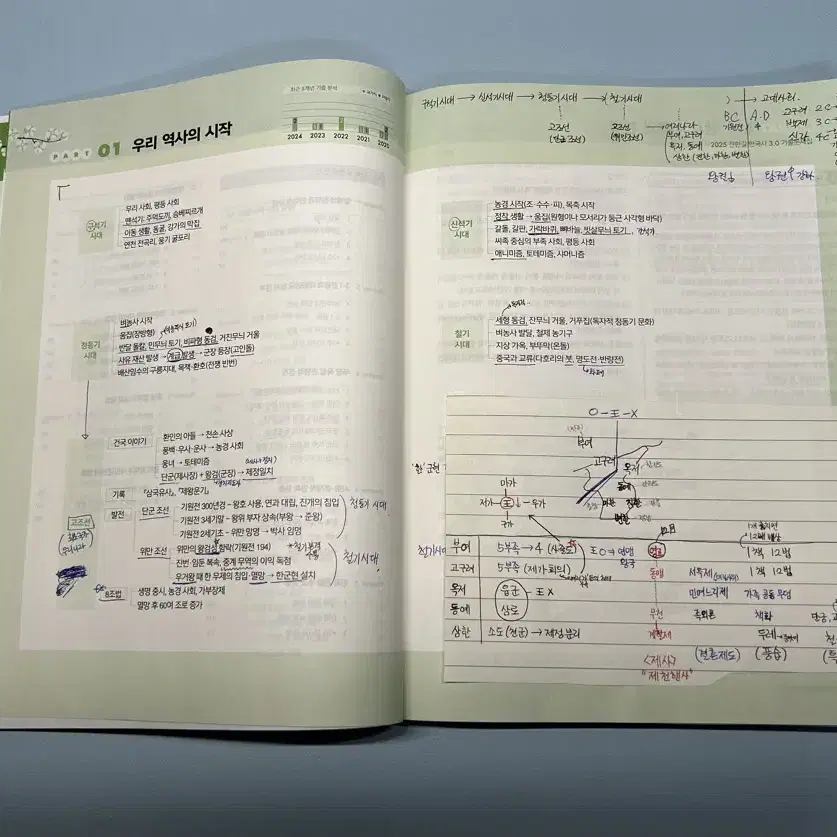 최근 5개년 기출 분석
2024 2023 2022 2021 2020
PART 01 우리 역사의 시작
구석기 시대
무리 사회, 평등 사회
뗀석기: 주먹도끼, 슴베찌르개
이동 생활, 동굴, 강가의 막집
연천 전곡리, 웅기 굴포리
청동기 시대
벼농사 시작
움집(장방형)
반달 돌칼, 민무늬 토기, 비파형 동검, 거친무늬 거울
사유 재산 발생 → 계급 발생 → 군장 등장(고인돌)
배산임수의 구릉지대, 목책·환호(전쟁 빈번)
고조선
건국 이야기
환인의 아들 → 천손 사상
풍백·우사·운사 → 농경 사회
웅녀 → 토테미즘
단군(제사장) + 왕검(군장) → 제정일치
기록 『삼국유사』, 『제왕운기』
발전
단군 조선
기원전 300년경 - 왕호 사용, 연과 대립, 진개의 침입
기원전 3세기말 - 왕위 부자 상속(부왕 → 준왕)
기원전 2세기초 - 위만 망명 → 박사 임명
청동기 시대
위만 조선
위만의 왕검성 함락(기원전 194)
진번·임둔 복속, 중계 무역의 이익 독점
우거왕 때 한 무제의 침입·멸망 → 한군현 설치
철기시대
8조법
생명 중시, 농경 사회, 가부장제
멸망 후 60여 조로 증가
구석기시대 → 신석기시대 → 청동기시대 → 철기시대
고조선
(단군조선)
고조선
(위만조선)
여러나라
부여, 고구려
옥저, 동예
삼한 (변한, 마한, 진한)
BC A.D
고대사회
고구려 2C
백제 3C
신라 4C
2025 전한길한국사 3.0
신석기 시대
농경 시작(조·수수·피), 목축 시작
정착 생활 → 움집(원형이나 모서리가 둥근 사각형 바닥)
갈돌, 갈판, 가락바퀴, 뼈바늘, 빗살무늬 토기
씨족 중심의 부족 사회, 평등 사회
애니미즘, 토테미즘, 샤머니즘
철기 시대
세형 동검, 잔무늬 거울, 거푸집(독자적 청동기 문화)
벼농사 발달, 철제 농기구
지상 가옥, 부뚜막(온돌)
중국과 교류(다호리의 붓, 명도전·반량전)
O-王-X
부여
고구려
옥저
동예
마한 진한
변한
마가
저가 - 王 - 우가
구가
부여 5부족 → 4 (사출도) 王 O 1책 12법
고구려 5부족 (제가회의) 동맹 서옥제 1책 12법
옥저 읍군 - 王X 민며느리제 가족 공동 무덤
동예 삼로 무천 족외혼 책화
삼한 소도 (천군) → 제정분리 계절제 두레
<제사> (결혼제도) (풍습)
"제천행사"